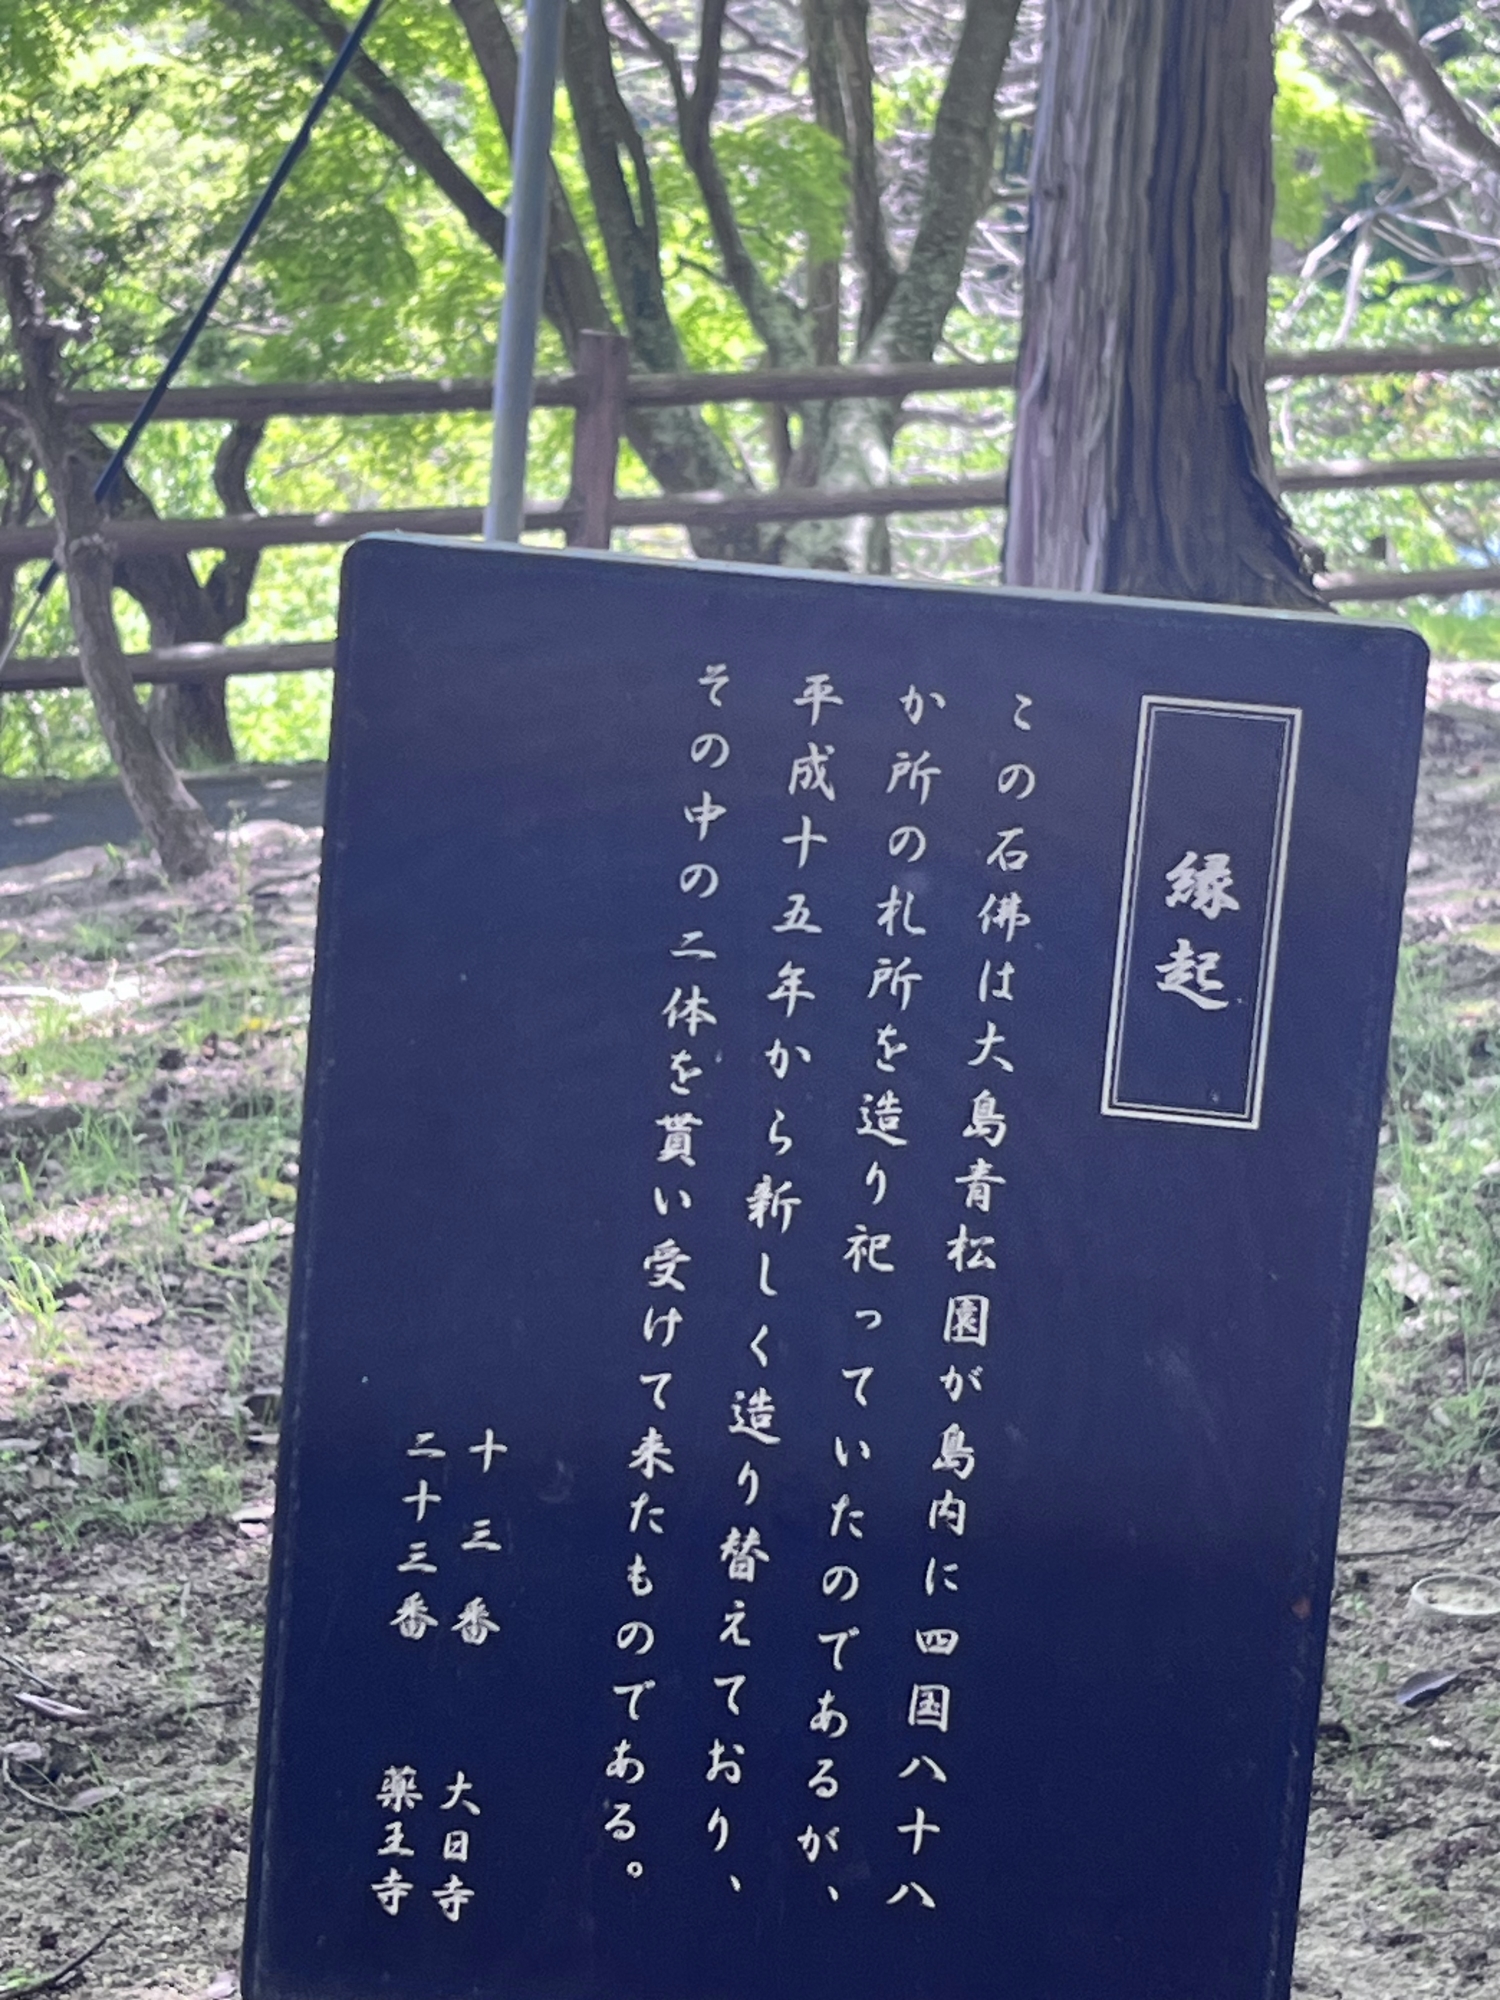 縁起
この石佛は大島青松園が島内に四国八十八
か所の札所を造り祀っていたのであるが、
平成十五年から新しく造り替えており、
その中の二体を貰い受けて来たものである。
十三番 大日寺
二十三番 薬王寺